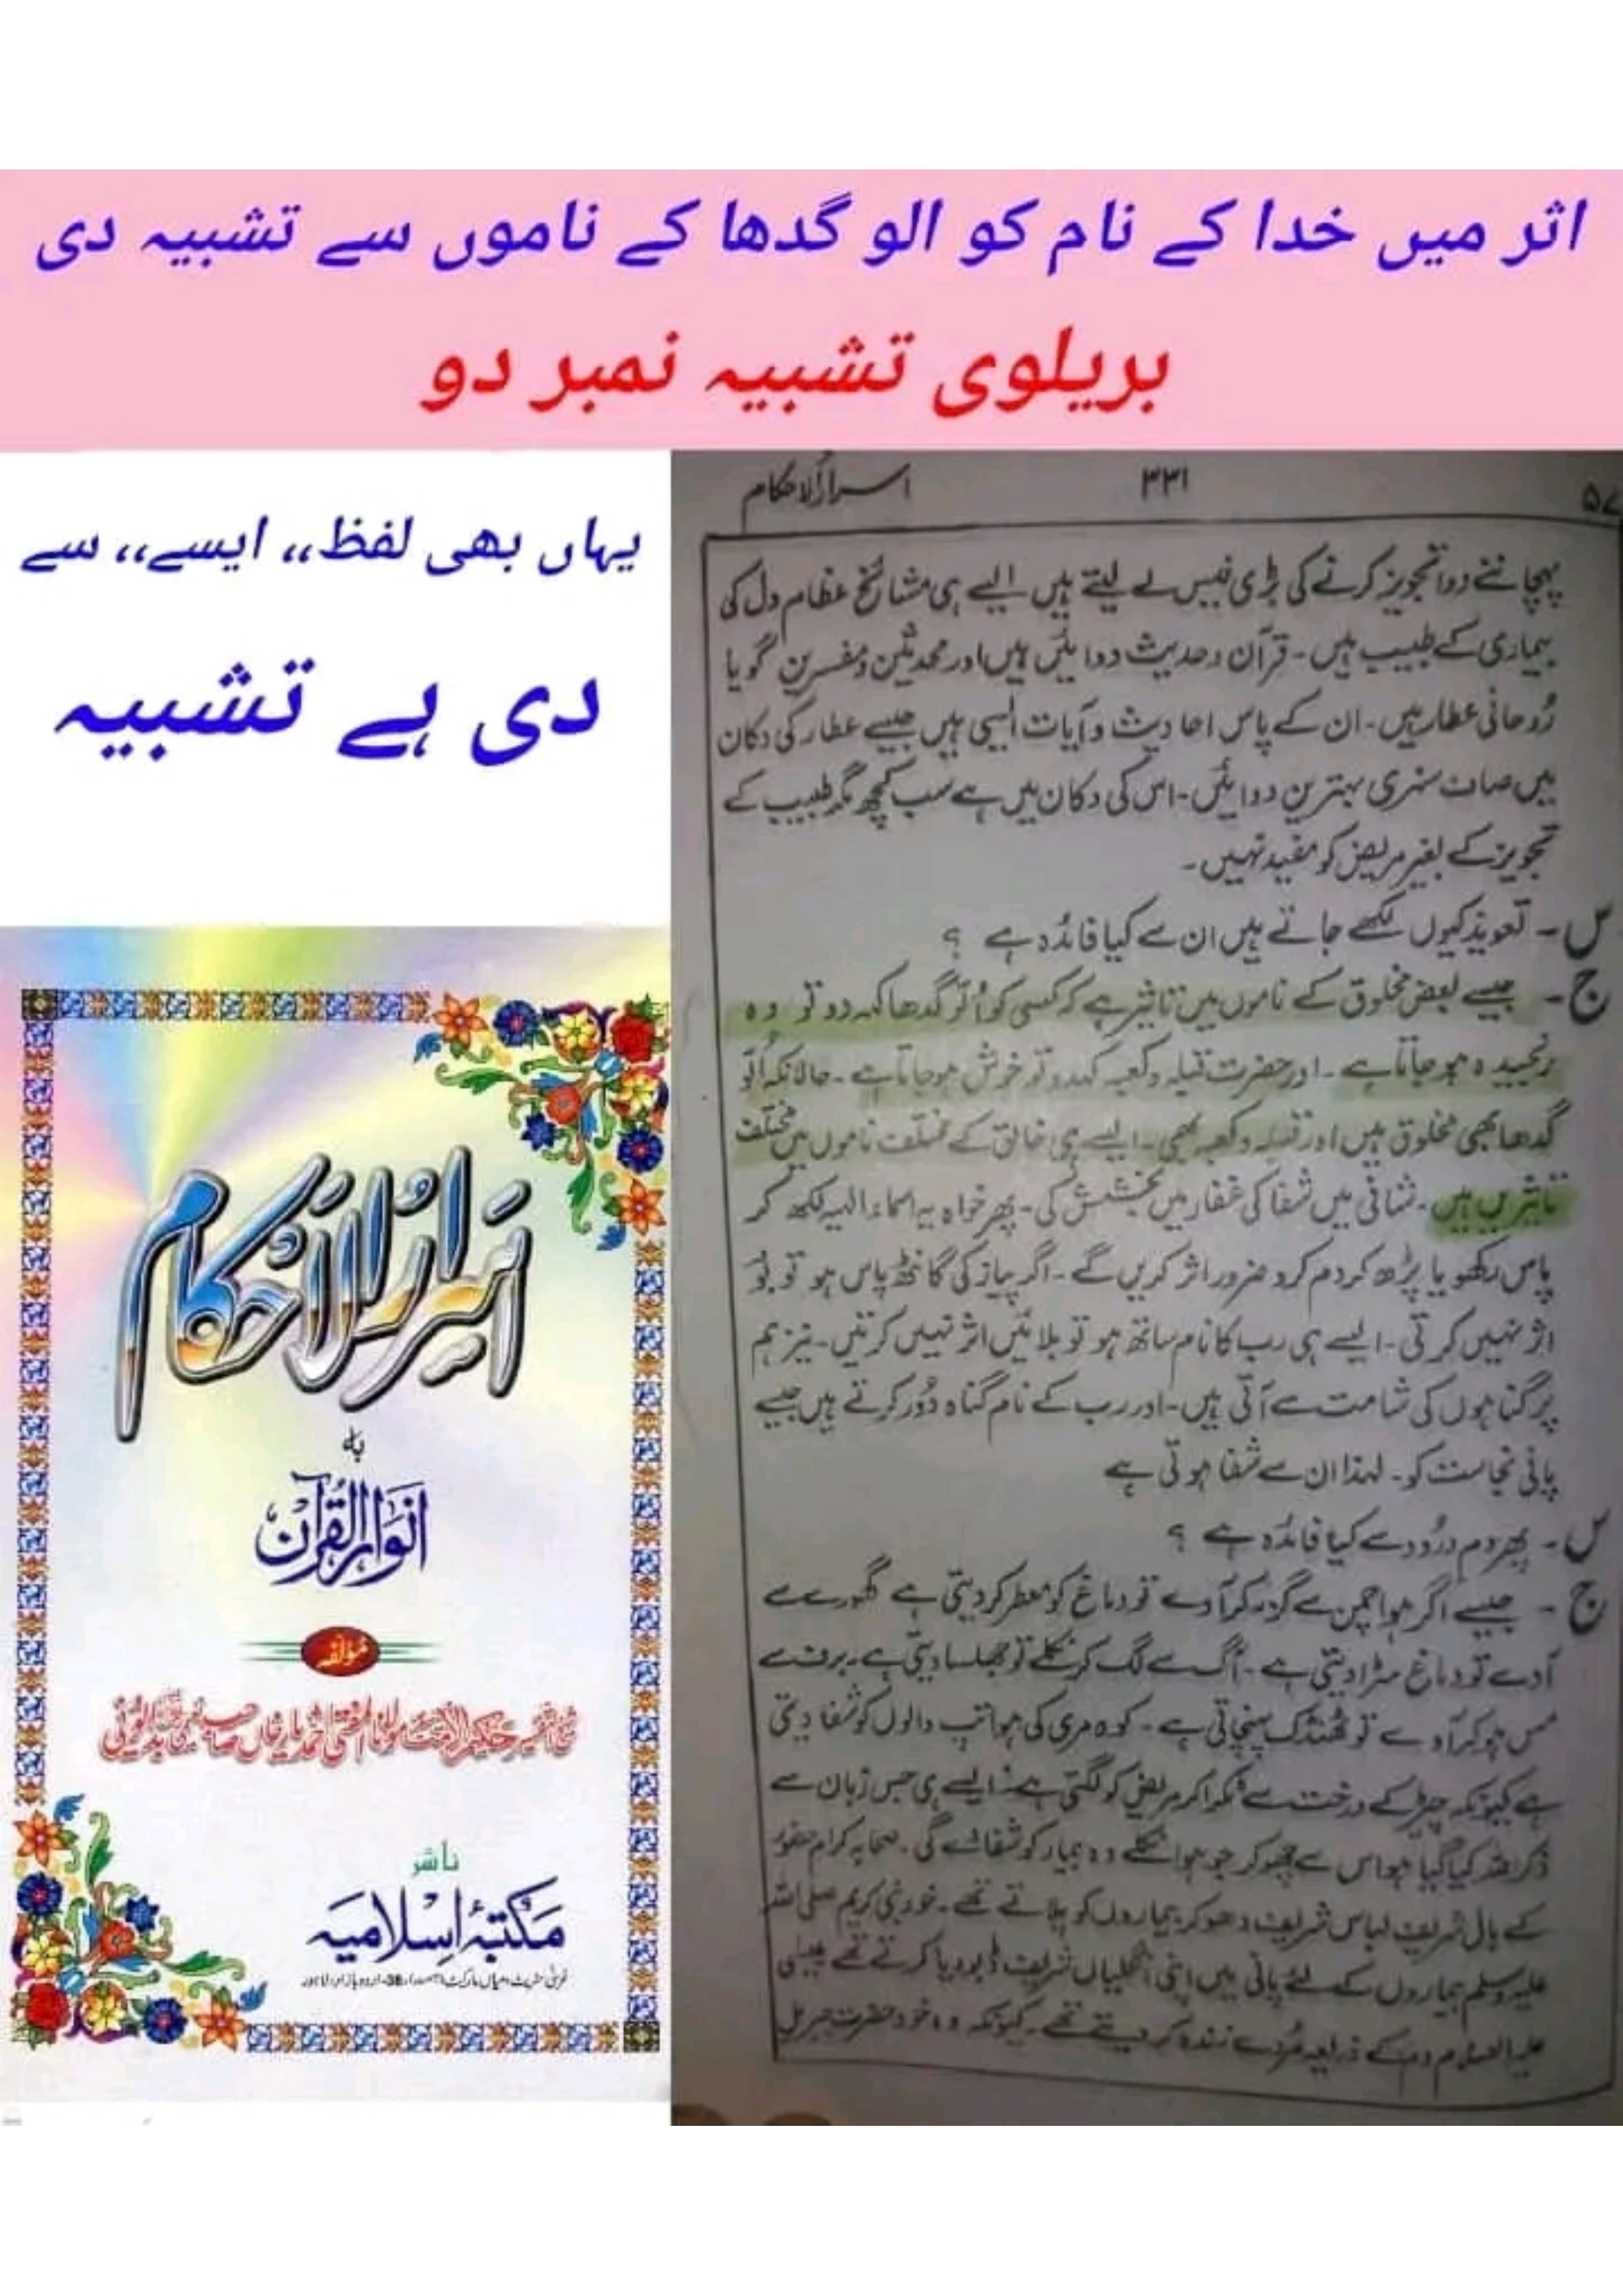 اثر میں خدا کے نام کو الو گدھا کے ناموں سے تشبیہ دی
بریلوی تشبیہ نمبر دو
یہاں بھی لفظ،، ایسے،، سے
دی ہے تشبیہ
اسرارُلاحکام
بہ
انوار القرآن
مؤلفہ
ناشر
مکتبۂ اسلامیہ
اسرارُلاحکام ۳۳۱ ۵۷
پہچاننے دوا تجویز کرنے کی بڑی فیس لے لیتے ہیں ایسے ہی مشائخ عظام دل کی
بیماری کے طبیب ہیں۔ قرآن وحدیث دوائیں ہیں اور محدثین ومفسرین گویا
رُوحانی عطار ہیں۔ ان کے پاس احادیث وآیات ایسی ہیں جیسے عطار کی دکان
میں صاف ستھری بہترین دوائیں۔ اس کی دکان میں ہے سب کچھ مگر طبیب کے
تجویز کے بغیر مریض کو مفید نہیں۔
س۔ تعویذ کیوں لکھے جاتے ہیں ان سے کیا فائدہ ہے ؟
ج۔ جیسے بعض مخلوق کے ناموں میں تاثیر ہے کہ کسی کو اُلّو گدھا کہہ دو تو وہ
رنجیدہ ہو جاتا ہے۔ اور حضرت قبلہ وکعبہ کہدو تو خوش ہو جاتا ہے۔ حالانکہ اُلّو
گدھا بھی مخلوق ہیں اور قبلہ وکعبہ بھی۔ ایسے ہی خالق کے مختلف ناموں میں مختلف
تاثیریں ہیں۔ شافی میں شفا کی غفار میں بخشش کی۔ پھر خواہ یہ اسماء الٰہیہ لکھ کر
پاس رکھو یا پڑھ کر دم کرو ضرور اثر کریں گے۔ اگر پیاز کی گانٹھ پاس ہو تو لُو
اثر نہیں کرتی۔ ایسے ہی رب کا نام ساتھ ہو تو بلائیں اثر نہیں کرتیں۔ نیز ہم
پر گناہوں کی شامت سے آتی ہیں۔ اور رب کے نام گناہ دُور کرتے ہیں جیسے
پانی نجاست کو۔ لہذا ان سے شفا ہوتی ہے
س۔ پھر دم درُود سے کیا فائدہ ہے ؟
ج۔ جیسے اگر ہوا چمن سے گزر کر آوے تو دماغ کو معطر کر دیتی ہے گھورے سے
آوے تو دماغ سڑا دیتی ہے۔ آگ سے لگ کر نکلے تو جھلسا دیتی ہے۔ برف سے
مس ہو کر آوے تو ٹھنڈک پہنچاتی ہے۔ کوہ مری کی ہوا تپ والوں کو شفا دیتی
ہے کیونکہ چیڑ کے درخت سے ٹکرا کر مریض کو لگتی ہے۔ ایسے ہی جس زبان سے
ذکر اللہ کیا گیا ہو اس سے چھو کر جو ہوا نکلے وہ بیمار کو شفا دے گی۔ صحابہ کرام حضور
کے بال شریف لباس شریف دھو کر بیماروں کو پلاتے تھے۔ خود نبی کریم صلی اللہ
علیہ وسلم بیماروں کے لئے پانی میں اپنی انگلیاں شریف ڈبو دیا کرتے تھے عیسیٰ
علیہ السلام دم کے ذریعہ مُردے زندہ کر دیتے تھے۔ کیونکہ وہ خود حضرت جبریل